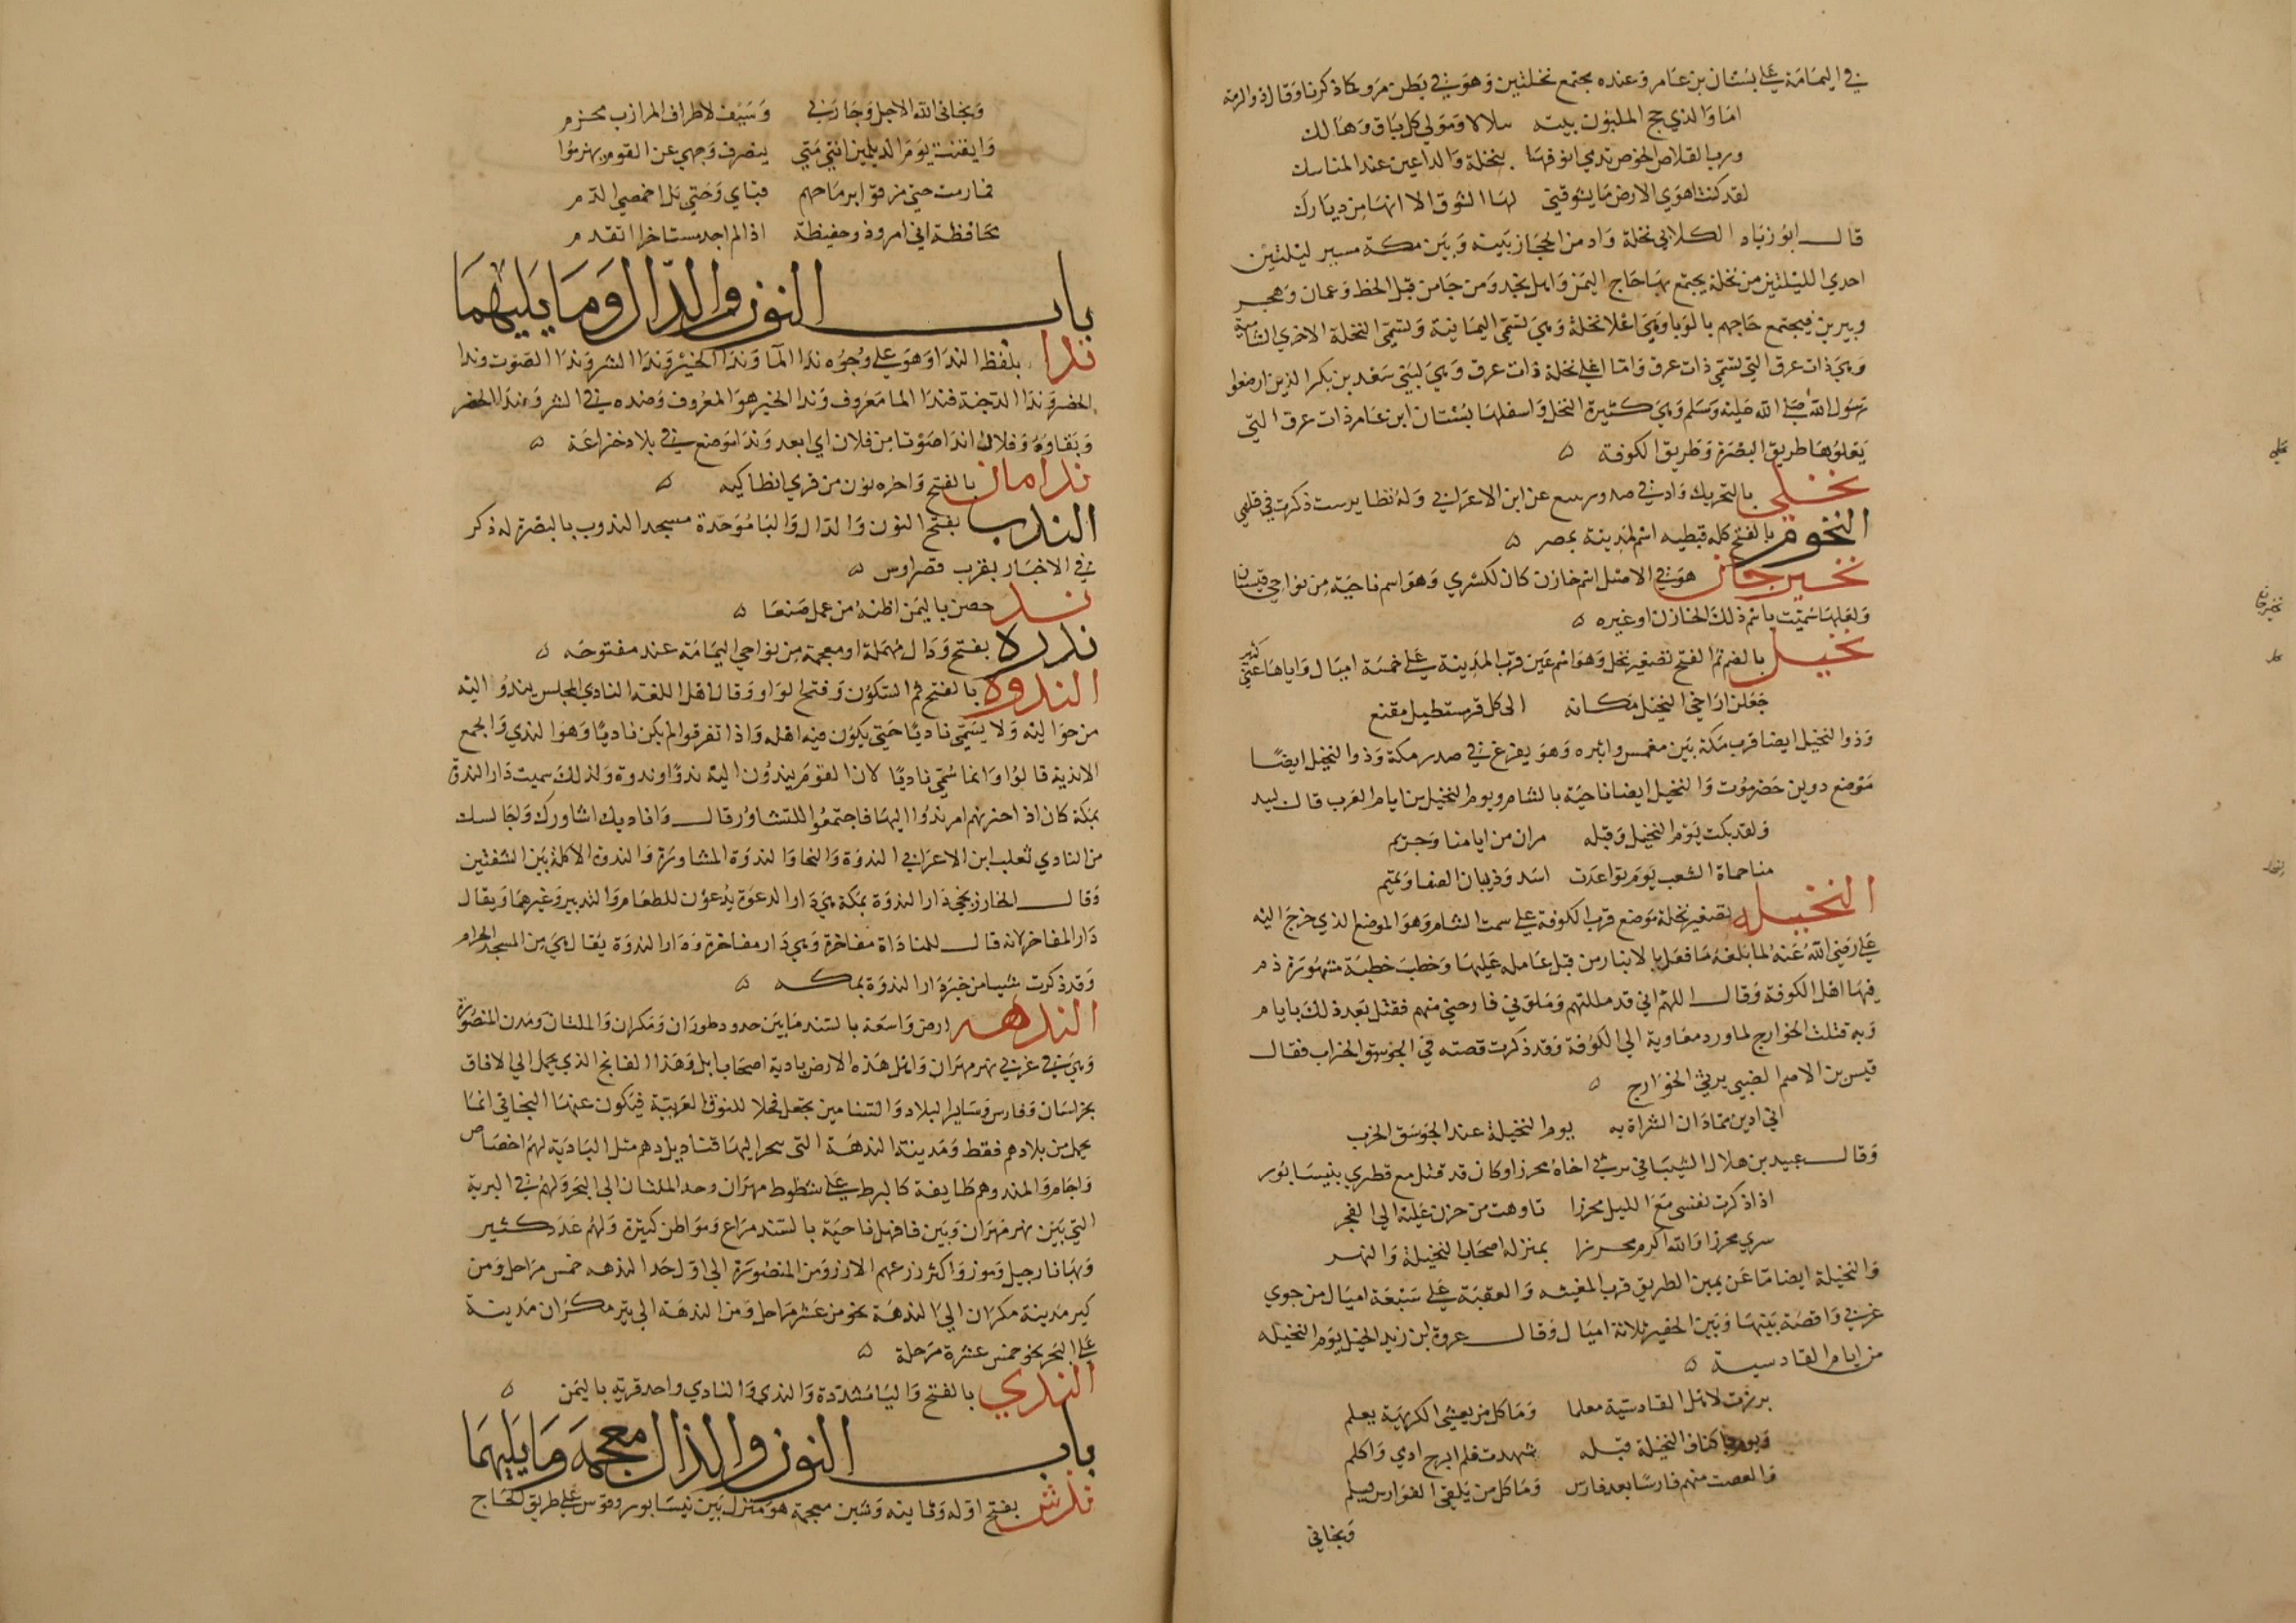 في اليمامة على بستان بن عامر وعنده مجتمع نخلتين وهو في بطن مر وكما ذكرنا وقال ذو الرمة
اما والذي حج الملبون بيته سلالا ومولى كل باق وهالك
ورب القلاص الخوص تدمي انوفها بنخلة والداعين عند المناسك
لقد كنت اهوى الارض ما يشوقني لها الشوق الا انها من ديارك
قال ابو زياد الكلابي نخلة واد من الحجاز بينه وبين مكة مسير ليلتين
احدى الليلتين من نخلة يجتمع بها حاج اليمن واهل نجد ومن جا من قبل الخط وعمان وهجر
ويبرين فيجتمع حاجهم بالوباوي اعلا نخلة وهي تسمى اليمانية وتسمى النخلة الاخرى الشامية
وهي ذات عرق التي تسمى ذات عرق واما اعلى نخلة ذات عرق وهي لبني سعد بن بكر الذين ارضعوا
رسول الله صلى الله عليه وسلم وهي كثيرة النخل واسفلها بستان ابن عامر ذات عرق التي
يعلوها طريق البصرة وطريق الكوفة ه
نخلي بالتحريك واد في صدر ينبع عن ابن الاعرابي وله نظاير ست ذكرت في قلهي
النخوم بالفتح كلمه قبطيه اسم لمدينة بمصر ه
نخيرجان هو في الاصل اسم خازن كان لكسري وهو اسم ناحية من نواحي قهستان
ولعلها سميت باسم ذلك الخازن او غيره ه
نخيل بالضم ثم الفتح تصغير نخل وهو اسم عين قرب المدينة على خمسة اميال واياها عنى كثير
جعلن اراخي النخيل مكانه الى كل قر مستطيل مقنع
وذو النخيل ايضا قرب مكة بين مغمس واثبره وهو يفرغ في صدر مكة وذو النخيل ايضا
موضع دوين حضرموت والنخيل ايضا ناحية بالشام ويوم النخيل من ايام العرب قال لبيد
ولقد بكت يوم النخيل وقبله مران من ايامنا وحريم
منا حماة الشعب يوم تواعدت اسد وذبيان الصفا وتميم
النخيله تصغير نخلة موضع قرب الكوفة على سمت الشام وهو الموضع الذي خرج اليه
علي رضي الله عنه لما بلغه ما فعل بالانبار من قتل عامله عليها وخطب خطبة مشهورة ذم
فيها اهل الكوفة وقال اللهم اني قد مللتهم وملوني فارحني منهم فقتل بعد ذلك بايام
وبه قتلت الخوارج لما ورد معاوية الى الكوفة وقد ذكرت قصته في الجوسق الخراب فقال
قيس بن الاصم الضبي يرثي الخوارج ه
اني ادين بما دان الشراة به يوم النخيلة عند الجوسق الخرب
وقال عبيد بن هلال الشيباني يرثي اخاه محرزا وكان قد قتل مع قطري بنيسابور
اذا ذكرت نفسي مع الليل محرزا تاوهت من حزن عليه الى الفجر
سري محرزا والله اكرم محرزا بمنزله اصحاب النخيلة والنهر
والنخيلة ايضا ما عن يمين الطريق قرب المغيثه والعقبة على سبعة اميال من جوي
غربي واقصة بينها وبين الحفير ثلاثة اميال وقال عروة ابن زيد الخيل يوم النخيله
من ايام القادسية ه
برزت لاهل القادسية معلما وما كل من يغشى الكريهة يعلم
ويوم باكناف النخيلة قبله شهدت فلم ابرح ادمي واكلم
واقعصت منهم فارسا بعد فارس وما كل من يلقى الفوارس يسلم
ونجاني
ونجاني الله الاجل وجارني وسيف لاطراف المرازب مخزم
وايقنت يوم الديلمين انني متى ينصرف وجهي عن القوم يهزموا
فما رمت حتى مزقوا برماحهم قباي وحتى بل اخمصي الدم
محافظة اني امرؤ ذو حفيظة اذا لم اجد مستاخرا اتقدم
باب النون والدال وما يليهما
ندا بلفظ الندا وهو على وجوه ندا الما وندا الخير وندا الشر وندا الصوت وندا
الحضر وندا الدجنة فندا الما معروف وندا الخير هو المعروف وضده في الشر وندا الحضر
وبقاوه وفلان اندا صوتا من فلان اي ابعد وندا موضع في بلاد خزاعة ه
ندامان بالفتح واخره نون من قري انطاكيه ه
الندب بفتح النون والدال والبا موحدة مسجد الندوب بالبصرة له ذكر
في الاخبار بقرب قصر اوس ه
ند حصن باليمن اظنه من عمل صنعا ه
ندره بفتح ودال مهملة او معجمة من نواحي اليمامة عند مفتوحه ه
الندوه بالفتح ثم السكون وفتح الواو وقال اهل اللغه النادي المجلس يندو اليه
من حواليه ولا يسمى ناديا حتى يكون فيه اهله واذا تفرقوا لم يكن ناديا وهو الندي والجمع
الاندية قالوا وانما سمي ناديا لان القوم يندون اليه ندوا وندوة ولذلك سميت دار الندوة
بمكة كان اذا احزنهم امر ندوا اليها فاجتمعوا للتشاور قال واناديك اشاورك واجالسك
من النادي ثعلب ابن الاعرابي الندوة والنحا والندوة المشاورة والندوة الاكلة بين الشفتين
وقال الخارزنجي دار الندوة بمكة هي دار الدعوة يدعون للطعام والتدبير وغيرهما ويقال
دار المفاخر لانه قال للمناداة مفاخرة وهي دار مفاخرة ودار الندوة يقال هي من المسجد الحرام
وقد ذكرت شيا من خبر دار الندوة بمكه ه
الندهه ارض واسعة بالسند ما بين حدود طوران ومكران والملتان ومدن المنصورة
وهي في غربي نهر مهران واهل هذه الارض بادية اصحاب ابل وهذا الفالج الذي يحمل الى الافاق
بخراسان وفارس وساير البلاد والسنامين يجعل فحلا للنوق العربية فيكون عنها البخاتي انما
يحمل من بلادهم فقط ومدينة الندهة التي يتجر اليها قنداپيل وهم مثل البادية لهم اخصاص
واجام والمند وهم طايفة كالبرط على شطوط مهران وحد الملتان الى البحر ولهم في البرية
التي بين نهر مهران وبين قافهل ناحية بالسند مراع ومواطن كثيرة ولهم عدد كثير
وبها نارجيل وموز واكثر زرعهم الارز ومن المنصورة الى اول حد الندهه خمس مراحل ومن
كيز مدينة مكران الى الندهة نحو من عشر مراحل ومن الندهة الى تيز مكران مدينة
على البحر نحو خمس عشرة مرحلة ه
الندي بالفتح واليا مشددة والندي والنادي واحد قرية باليمن ه
باب النون والذال معجمة وما يليهما
نذش بفتح اوله وثانيه وشين معجمة هو منزل بين نيسابور وقومس على طريق الحاج